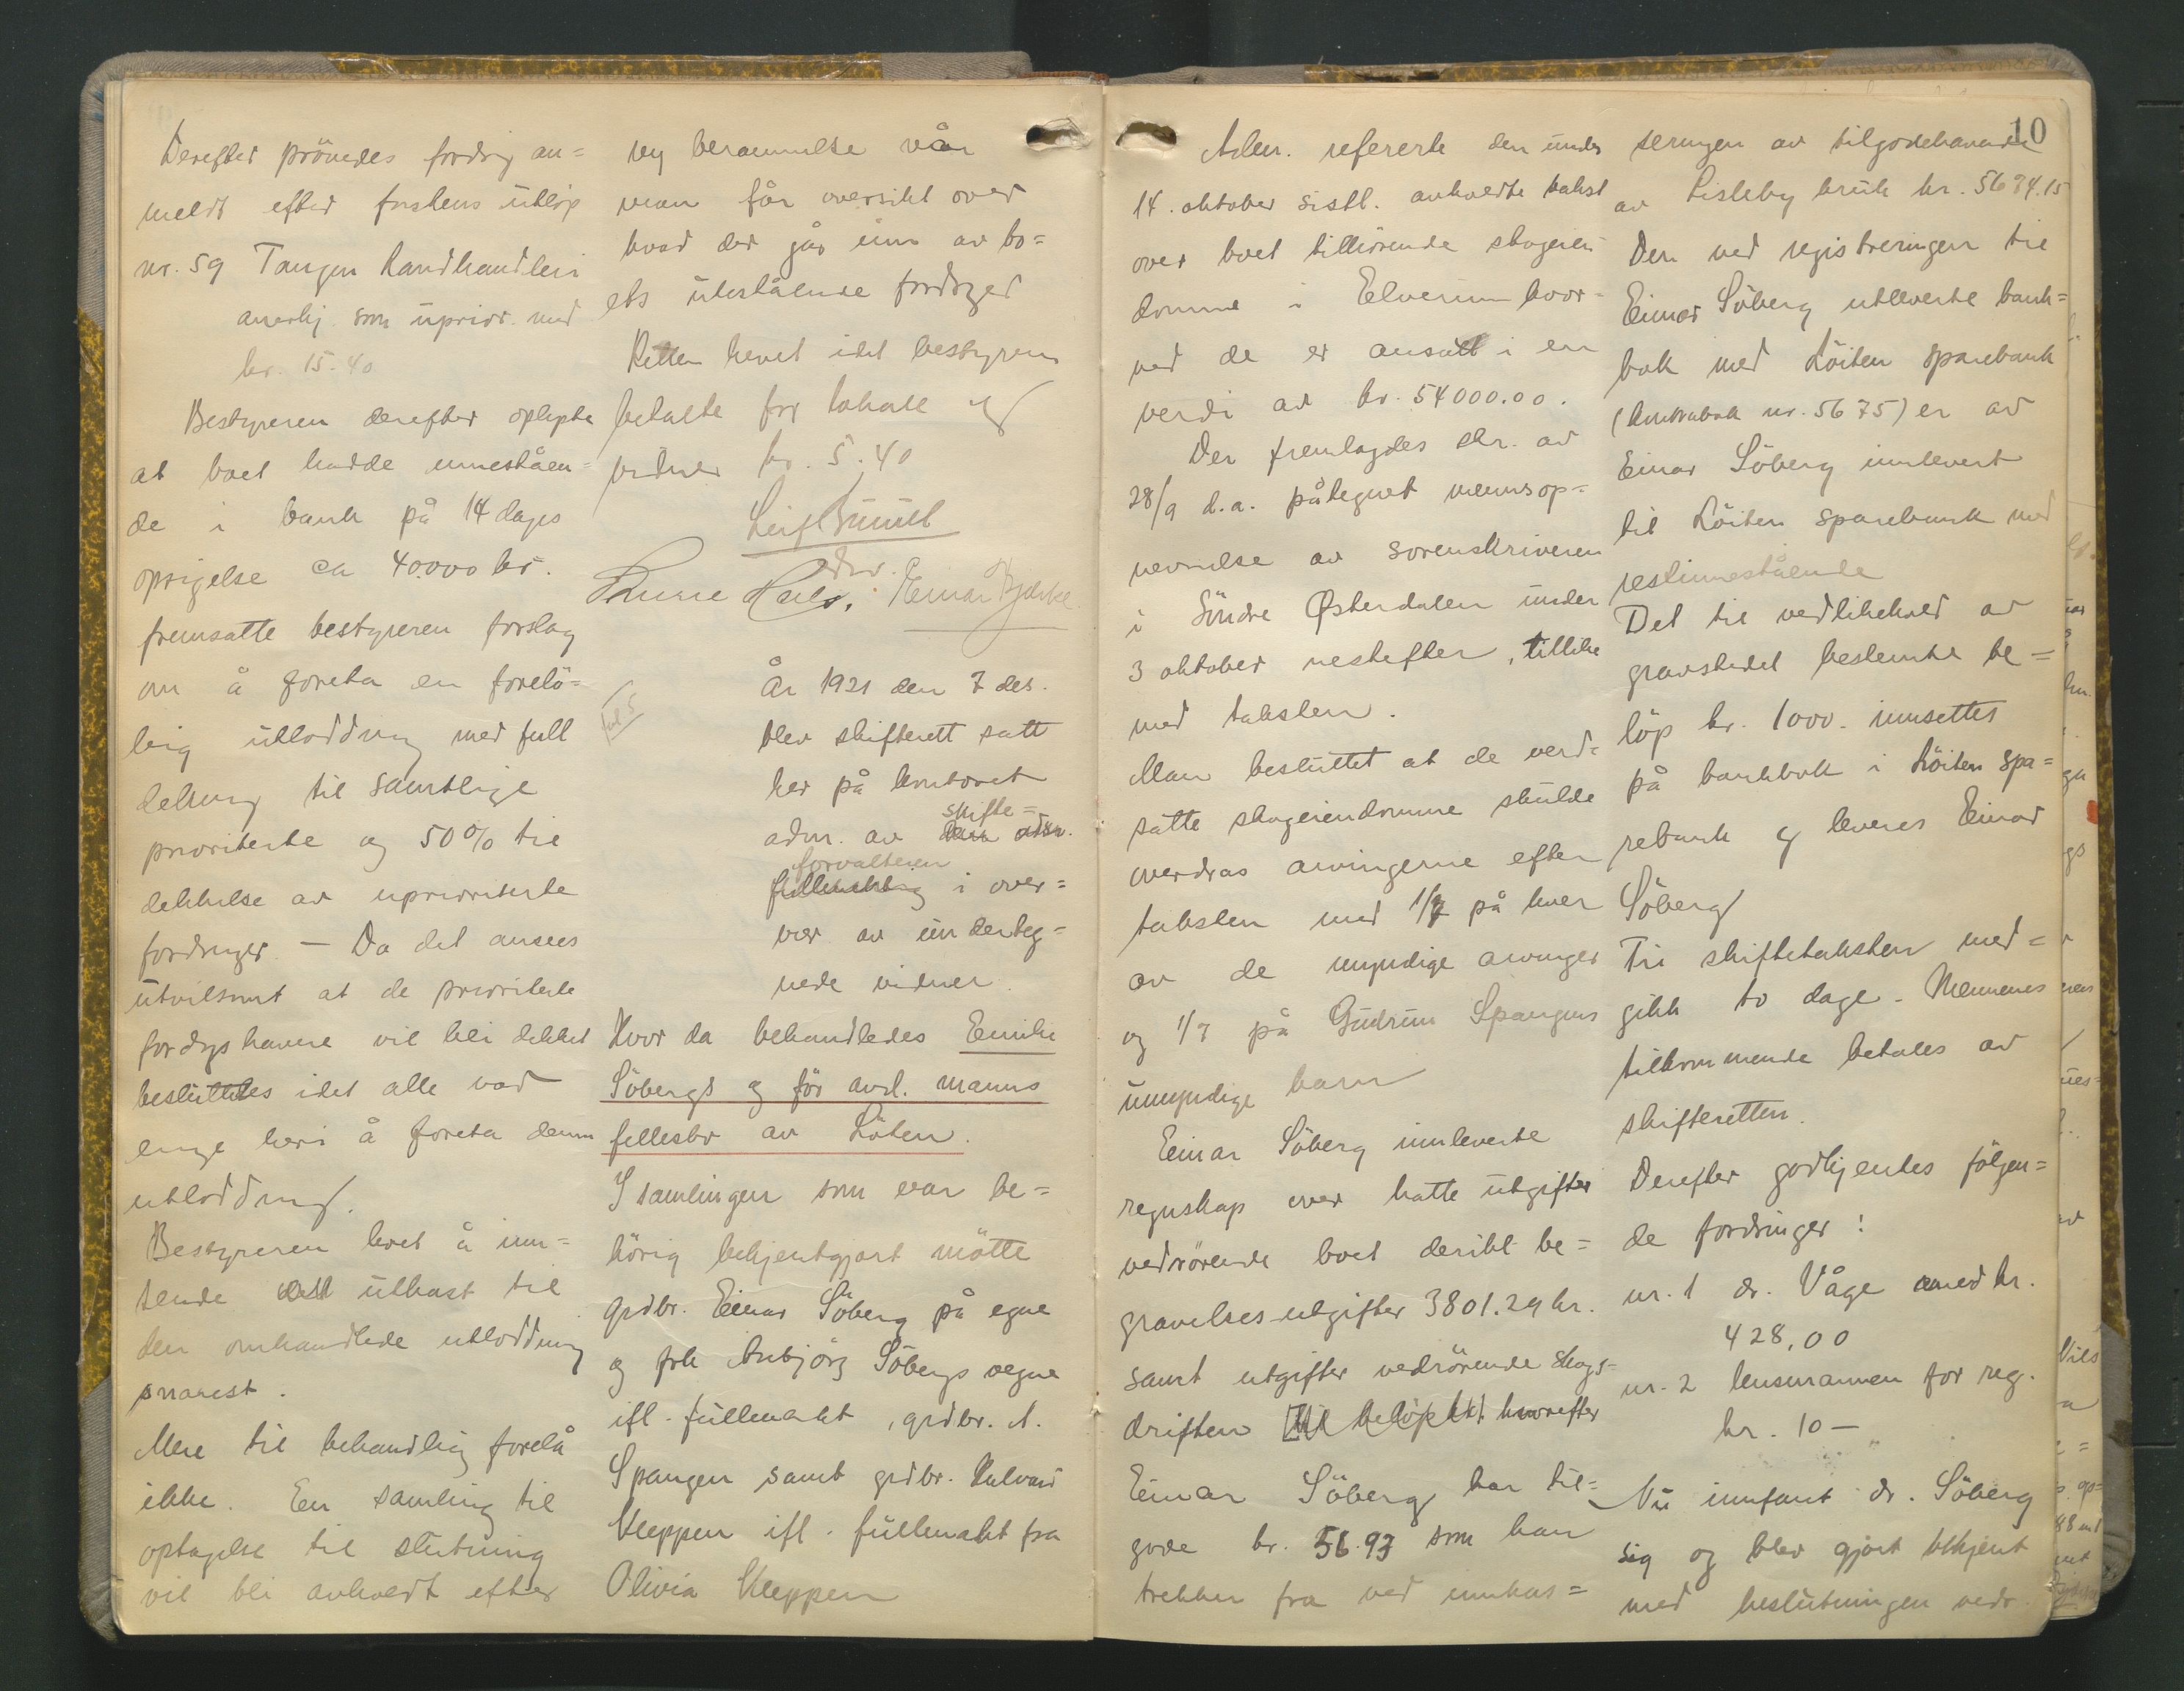 Derefter prövedes fordrig an=
meldt efter fristens utlöp
nr. 59 Tangen Landhandleri
anerkj. som uprior. med
kr. 15.40
Bestyreren derefter oplyste
at boet hadde inneståen=
de i bank på 14 dages
opsigelse ca 40.000 kr.
fremsatte bestyreren forslag
om å foreta en forelö=
big utlodding med full
dekning til samtlige
prioriterte og 50% til
dekkelse av uprioriterte
fordringer. – Da det ansees
utvilsomt at de prioriterte
fordrgshavere vil bli dekket
besluttedes idet alle var
enige heri å foreta denne
utlodding.
Bestyreren lovet å inn=
sende utkast til
den omhandlede utlodding
snarest.
Mere til behandlig forelå
ikke. En samling til
optagelse til slutning
vil bli avholdt efter
ny berammelse når
man får oversikt over
hvad der går inn av bo=
ets utestående fordrger
Retten hevet idet bestyreren
betalte for lokale og
vidner kr. 5.40
År 1921 den 7 des.
blev skifterett satt
her på kontoret
adm. av skifte=
forvalteren i over=
vær av underteg=
nede vidner.
Hvor da behandledes Emilie
Söbergs og för avd. manns
fellesbo av Löten.
I samlingen som var be=
hörig bekjentgjort mötte
grdbr. Einar Söberg på egne
og frk Anbjörg Söbergs vegne
ifl. fullmakt, grdbr. A.
Spangen samt grdbr. Halvard
Kleppen ifl. fullmakt fra
Olivia Kleppen
10
Adm. refererte den under
14. oktober sistl. avholdte takst
over boet tilhörende skogeien
domme i Elverum hvor-
ved de er ansatt i en
verdi av kr. 54000.00.
Der fremlagdes skr. av
28/9 d.a. påtegnet mennsop=
nevnelse av sorenskriveren
i Söndre Østerdalen under
3 oktober nestefter, tillike
med taksten.
Man besluttet at de verd=
satte skogeiendomme skulde
overdras arvingerne efter
taksten med 1/7 på hver
av de myndige arvinger
og 1/7 på Gudrun Spangens
umyndige barn
Einar Söberg innleverte
regnskap over hatte utgifter
vedrörende boet deribl. be=
gravelses-utgifter 3801.29 kr.
samt utgifter vedrörende skogs-
driften hvorefter
Einar Söberg har til=
gode kr. 56.93 som han
trekker fra ved innkas=
seringen av tilgodehavende
av Lisleby bruk kr. 5674.15
Den ved registreringen til
Einar Söberg utleverte bank=
bok med Löiten sparebank
(kontrabok nr. 5675) er av
Einar Söberg innlevert
til Löiten sparebank med
restinnestående
Det til vedlikehold av
gravstedet bestemte be=
löp kr. 1000. innsettes
på bankbok i Löiten spa=
rebank og leveres Einar
Söberg
Til skiftetaksten med=
gikk to dage. Mennenes
tilkommende betales av
skifteretten.
Derefter godkjentes fölgen=
de fordringer:
nr. 1 dr. Våge med kr.
428,00
nr. 2 lensmannen for reg.
kr. 10 –
Nu innfant dr. Söberg
sig og blev gjort bekjent
med beslutningen vedr.